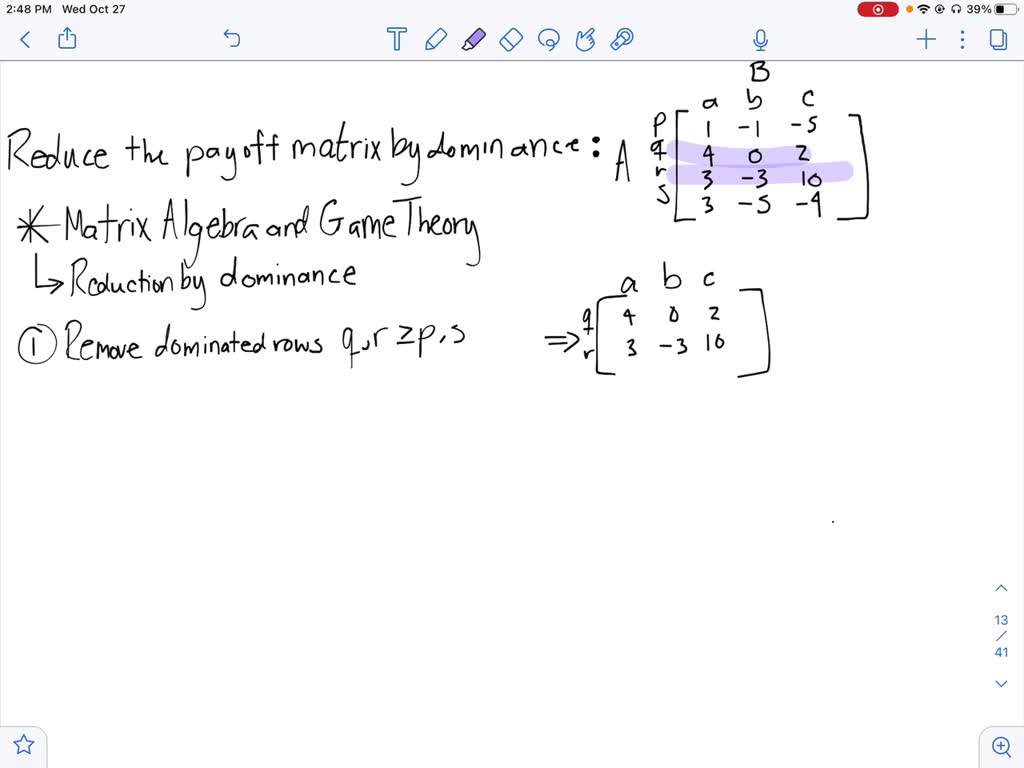 2:48 PM Wed Oct 27
39%
B
a b c
Reduce the payoff matrix by dominance: A
p 1 -1 -5
q 4 0 2
r 3 -3 10
s 3 -5 -4
* Matrix Algebra and Game Theory
↳ Reduction by dominance
① Remove dominated rows q,r ≥ p,s
a b c
⇒ q 4 0 2
r 3 -3 10
13
/
41